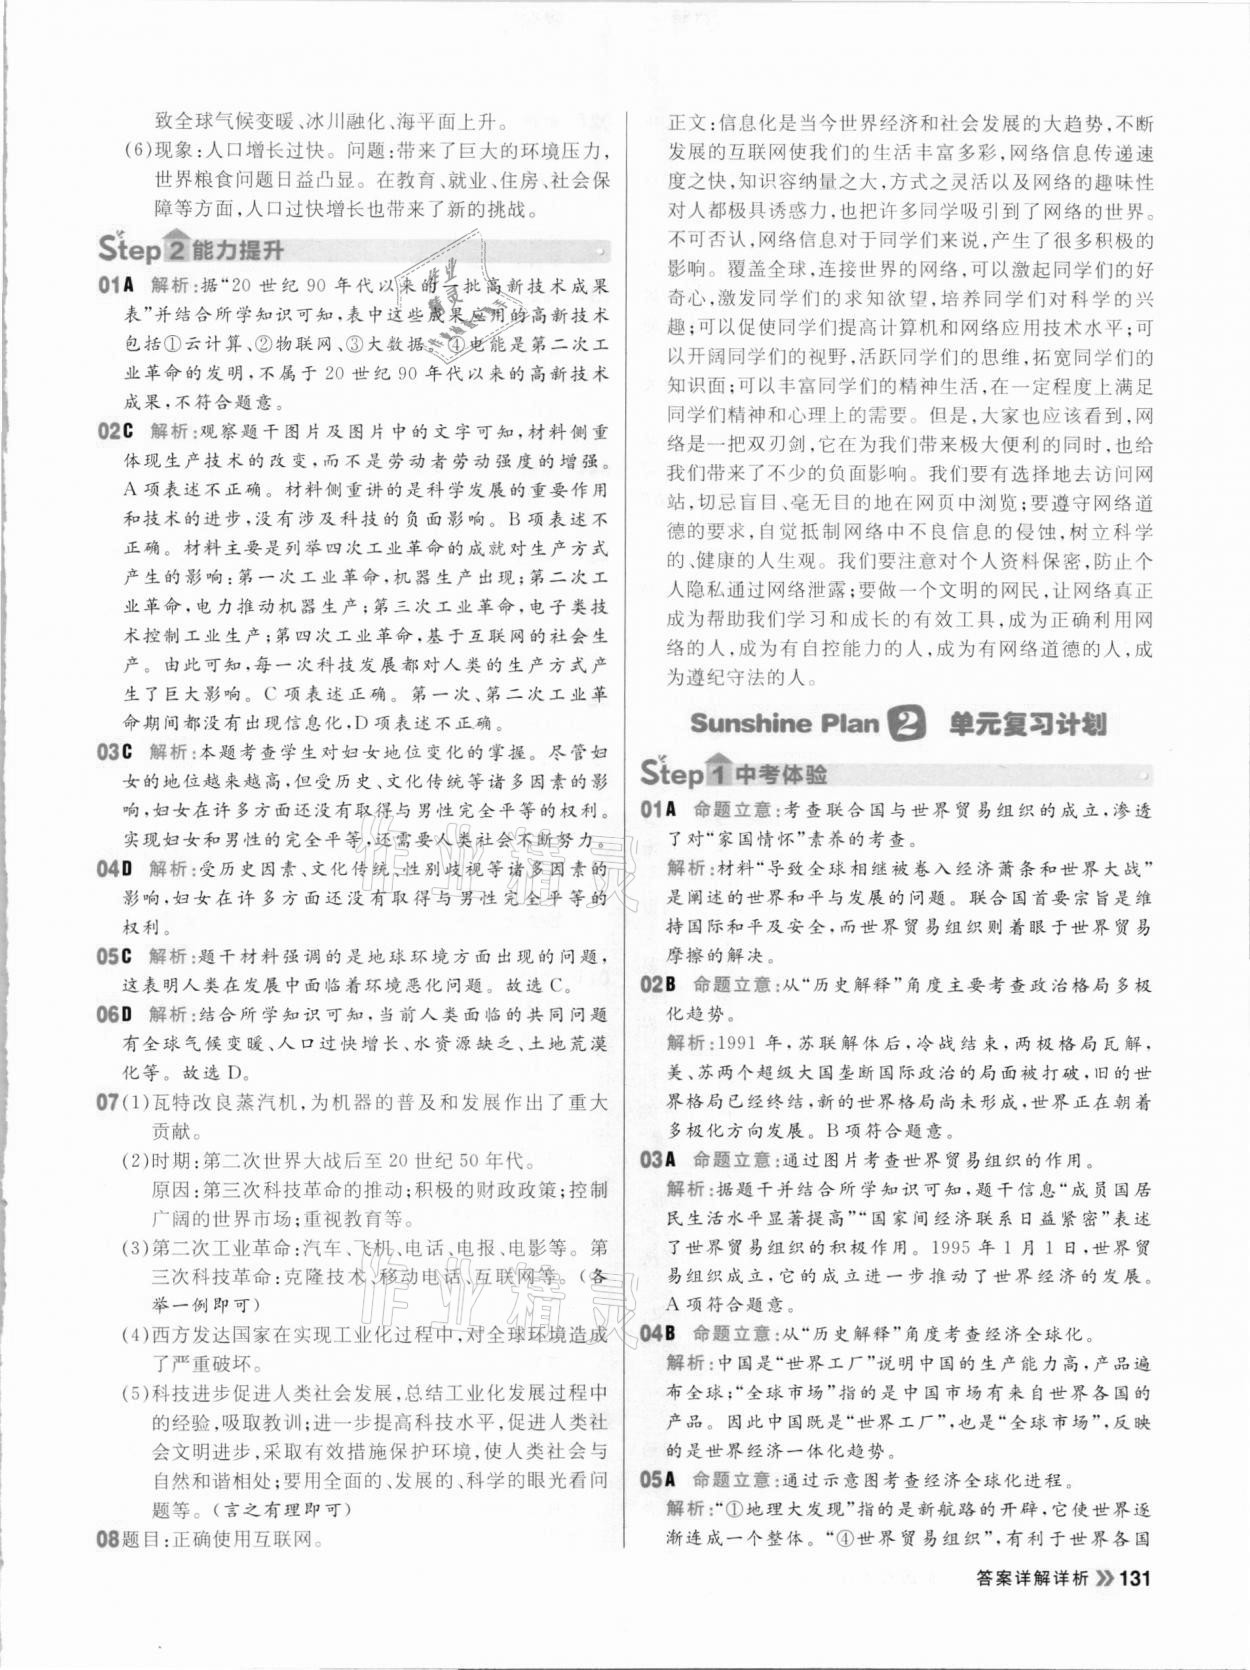 致全球气候变暖、冰川融化、海平面上升。
(6)现象:人口增长过快。问题:带来了巨大的环境压力,
世界粮食问题日益凸显。在教育、就业、住房、社会保
障等方面,人口过快增长也带来了新的挑战。
Step 2 能力提升
01 A 解析:据“20 世纪 90 年代以来的一批高新技术成果
表”并结合所学知识可知,表中这些成果应用的高新技术
包括①云计算、②物联网、③大数据。④电能是第二次工
业革命的发明,不属于 20 世纪 90 年代以来的高新技术
成果,不符合题意。
02 C 解析:观察题干图片及图片中的文字可知,材料侧重
体现生产技术的改变,而不是劳动者劳动强度的增强。
A 项表述不正确。材料侧重讲的是科学发展的重要作用
和技术的进步,没有涉及科技的负面影响。B 项表述不
正确。材料主要是列举四次工业革命的成就对生产方式
产生的影响:第一次工业革命,机器生产出现;第二次工
业革命,电力推动机器生产;第三次工业革命,电子类技
术控制工业生产;第四次工业革命,基于互联网的社会生
产。由此可知,每一次科技发展都对人类的生产方式产
生了巨大影响。C 项表述正确。第一次、第二次工业革
命期间都没有出现信息化,D 项表述不正确。
03 C 解析:本题考查学生对妇女地位变化的掌握。尽管妇
女的地位越来越高,但受历史、文化传统等诸多因素的影
响,妇女在许多方面还没有取得与男性完全平等的权利。
实现妇女和男性的完全平等,还需要人类社会不断努力。
04 D 解析:受历史因素、文化传统、性别歧视等诸多因素的
影响,妇女在许多方面还没有取得与男性完全平等的
权利。
05 C 解析:题干材料强调的是地球环境方面出现的问题,
这表明人类在发展中面临着环境恶化问题。故选 C。
06 D 解析:结合所学知识可知,当前人类面临的共同问题
有全球气候变暖、人口过快增长、水资源缺乏、土地荒漠
化等。故选 D。
07 (1)瓦特改良蒸汽机,为机器的普及和发展作出了重大
贡献。
(2)时期:第二次世界大战后至 20 世纪 50 年代。
原因:第三次科技革命的推动;积极的财政政策;控制
广阔的世界市场;重视教育等。
(3)第二次工业革命:汽车、飞机、电话、电报、电影等。第
三次科技革命:克隆技术、移动电话、互联网等。(各
举一例即可)
(4)西方发达国家在实现工业化过程中,对全球环境造成
了严重破坏。
(5)科技进步促进人类社会发展,总结工业化发展过程中
的经验,吸取教训;进一步提高科技水平,促进人类社
会文明进步,采取有效措施保护环境,使人类社会与
自然和谐相处;要用全面的、发展的、科学的眼光看问
题等。(言之有理即可)
08 题目:正确使用互联网。
正文:信息化是当今世界经济和社会发展的大趋势,不断
发展的互联网使我们的生活丰富多彩,网络信息传递速
度之快,知识容纳量之大,方式之灵活以及网络的趣味性
对人都极具诱惑力,也把许多同学吸引到了网络的世界。
不可否认,网络信息对于同学们来说,产生了很多积极的
影响。覆盖全球,连接世界的网络,可以激起同学们的好
奇心,激发同学们的求知欲望,培养同学们对科学的兴
趣;可以促使同学们提高计算机和网络应用技术水平;可
以开阔同学们的视野,活跃同学们的思维,拓宽同学们的
知识面;可以丰富同学们的精神生活,在一定程度上满足
同学们精神和心理上的需要。但是,大家也应该看到,网
络是一把双刃剑,它在为我们带来极大便利的同时,也给
我们带来了不少的负面影响。我们要有选择地去访问网
站,切忌盲目、毫无目的地在网页中浏览;要遵守网络道
德的要求,自觉抵制网络中不良信息的侵蚀,树立科学
的、健康的人生观。我们要注意对个人资料保密,防止个
人隐私通过网络泄露;要做一个文明的网民,让网络真正
成为帮助我们学习和成长的有效工具,成为正确利用网
络的人,成为有自控能力的人,成为有网络道德的人,成
为遵纪守法的人。
Sunshine Plan 2 单元复习计划
Step 1 中考体验
01 A 命题立意:考查联合国与世界贸易组织的成立,渗透
了对“家国情怀”素养的考查。
解析:材料“导致全球相继被卷入经济萧条和世界大战”
是阐述的世界和平与发展的问题。联合国首要宗旨是维
持国际和平及安全,而世界贸易组织则着眼于世界贸易
摩擦的解决。
02 B 命题立意:从“历史解释”角度主要考查政治格局多极
化趋势。
解析:1991 年,苏联解体后,冷战结束,两极格局瓦解,
美、苏两个超级大国垄断国际政治的局面被打破,旧的世
界格局已经终结,新的世界格局尚未形成,世界正在朝着
多极化方向发展。B 项符合题意。
03 A 命题立意:通过图片考查世界贸易组织的作用。
解析:据题干并结合所学知识可知,题干信息“成员国居
民生活水平显著提高”“国家间经济联系日益紧密”表述
了世界贸易组织的积极作用。1995 年 1 月 1 日,世界贸
易组织成立,它的成立进一步推动了世界经济的发展。
A 项符合题意。
04 B 命题立意:从“历史解释”角度考查经济全球化。
解析:中国是“世界工厂”说明中国的生产能力高,产品遍
布全球;“全球市场”指的是中国市场有来自世界各国的
产品。因此中国既是“世界工厂”,也是“全球市场”,反映
的是世界经济一体化趋势。
05 A 命题立意:通过示意图考查经济全球化进程。
解析:“①地理大发现”指的是新航路的开辟,它使世界逐
渐连成一个整体。“④世界贸易组织”,有利于世界各国
答案详解详析 131
作业精灵
作业精灵
作业精灵